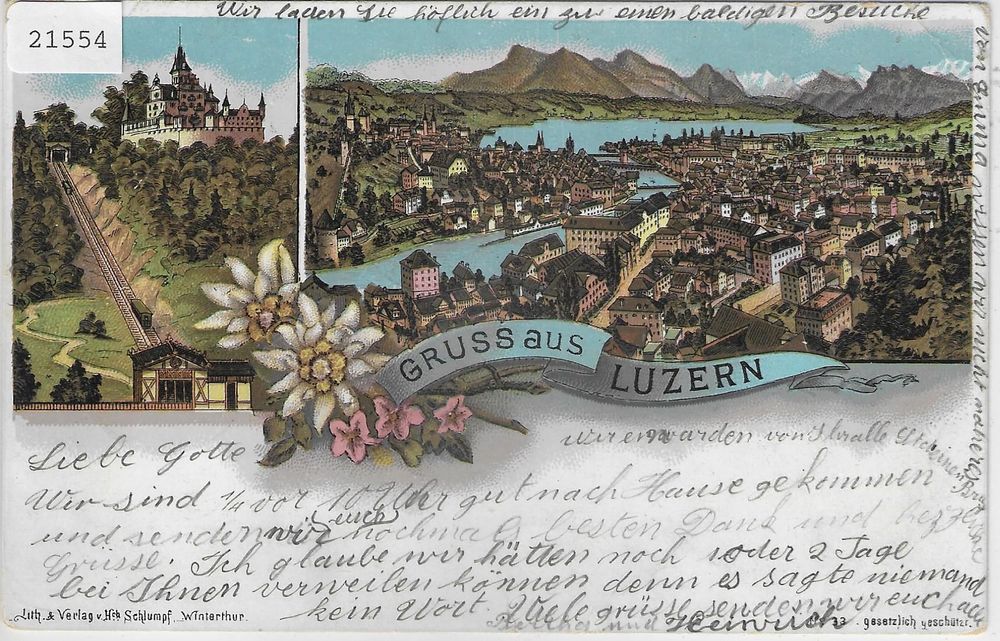 Wir laden Sie höflich ein zu einen baldigen Besuche
21554
GRUSS aus
LUZERN
Liebe Gotte
wir erwarden von
Wir sind 1/4 vor 10 Uhr gut nach Hause gekommen
und senden wir euch nochmals besten Dank und herz
Grüsse. Ich glaube wir hätten noch 1 oder 2 Tage
bei Ihnen verweilen können denn es sagte niemand
kein Wort. Viele grüsse senden wir euch
und Heinrich
Lith. & Verlag v. Hch Schlumpf, Winterthur.
33 gesetzlich geschützt.